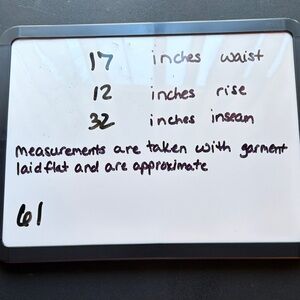 17 inches waist
12 inches rise
32 inches inseam
measurements are taken with garment
laid flat and are approximate
61